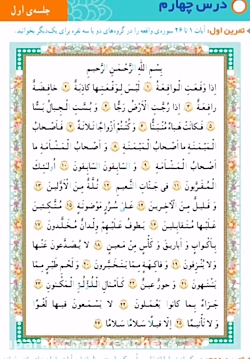 درس چهارم
جلسه‌ی اول
تمرین اول: آیات ۱ تا ۲۶ سوره‌ی واقعه را در گروه‌های دو یا سه نفره برای یک‌دیگر بخوانید.
بِسْمِ اللّٰهِ الرَّحْمٰنِ الرَّحیمِ
اِذا وَقَعَتِ الْواقِعَةُ ۱ لَیْسَ لِوَقْعَتِها کاذِبَةٌ ۲ خافِضَةٌ
رافِعَةٌ ۳ اِذا رُجَّتِ الْاَرْضُ رَجًّا ۴ وَ بُسَّتِ الْجِبالُ بَسًّا
۵ فَکانَتْ هَباءً مُنْبَثًّا ۶ وَ کُنْتُمْ اَزْواجًا ثَلاثَةً ۷ فَاَصْحابُ
الْمَیْمَنَةِ ما اَصْحابُ الْمَیْمَنَةِ ۸ وَ اَصْحابُ الْمَشْأَمَةِ ما
اَصْحابُ الْمَشْأَمَةِ ۹ وَ السّابِقونَ السّابِقونَ ۱۰ اُولٰئِکَ
الْمُقَرَّبونَ ۱۱ فی جَنّاتِ النَّعیمِ ۱۲ ثُلَّةٌ مِنَ الْاَوَّلینَ ۱۳
وَ قَلیلٌ مِنَ الْآخِرینَ ۱۴ عَلیٰ سُرُرٍ مَوْضونَةٍ ۱۵ مُتَّکِئینَ
عَلَیْها مُتَقابِلینَ ۱۶ یَطوفُ عَلَیْهِمْ وِلْدانٌ مُخَلَّدونَ ۱۷
بِاَکْوابٍ وَ اَباریقَ وَ کَأْسٍ مِنْ مَعینٍ ۱۸ لا یُصَدَّعونَ عَنْها
وَ لا یُنْزِفونَ ۱۹ وَ فاکِهَةٍ مِمّا یَتَخَیَّرونَ ۲۰ وَ لَحْمِ طَیْرٍ مِمّا
یَشْتَهونَ ۲۱ وَ حورٌ عینٌ ۲۲ کَاَمْثالِ اللُّؤْلُؤِ الْمَکْنونِ ۲۳
جَزاءً بِما کانوا یَعْمَلونَ ۲۴ لا یَسْمَعونَ فیها لَغْوًا
وَ لا تَأْثیمًا ۲۵ اِلّا قیلًا سَلامًا سَلامًا ۲۶